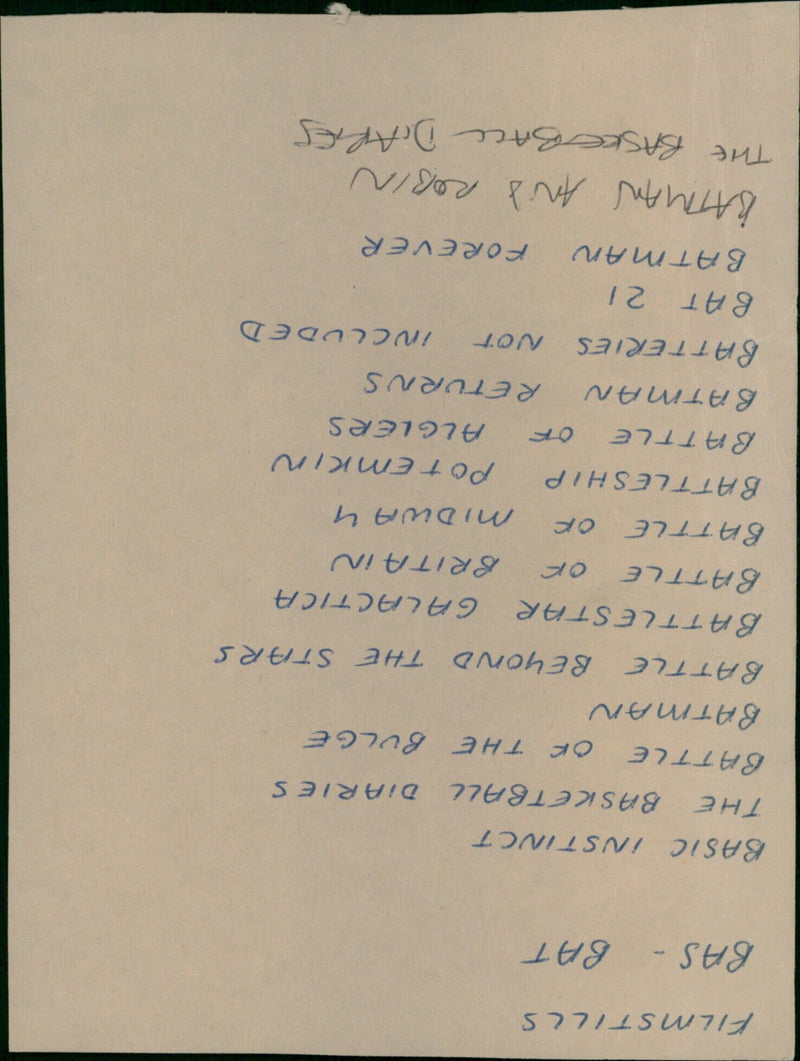 FILMSTILLS
BAS - BAT
BASIC INSTINCT
THE BASKETBALL DIARIES
BATTLE OF THE BULGE
BATMAN
BATTLE BEYOND THE STARS
BATTLESTAR GALACTICA
BATTLE OF BRITAIN
BATTLE OF MIDWAY
BATTLESHIP POTEMKIN
BATTLE OF ALGIERS
BATMAN RETURNS
BATTERIES NOT INCLUDED
BAT 21
BATMAN FOREVER
BATMAN AND ROBIN
THE BASKETBALL DIARIES